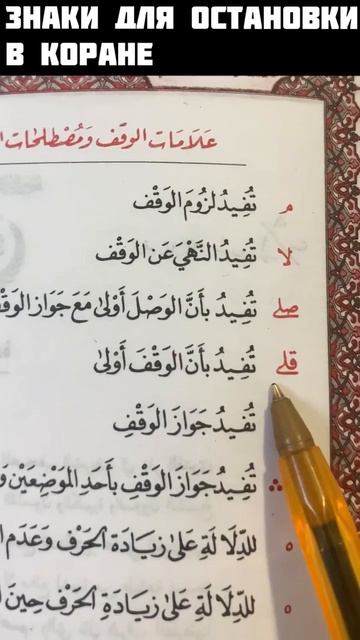 ЗНАКИ ДЛЯ ОСТАНОВКИ
В КОРАНЕ
عَلَامَات الوَقْف وَمُصْطَلَحَات
م تُفِيدُ لُزُومَ الوَقْف
لا تُفِيدُ النَّهْيَ عَنِ الوَقْف
صلے تُفِيدُ بِأَنَّ الوَصْلَ أَوْلَىٰ مَعَ جَوَازِ الوَقْ
قلے تُفِيدُ بِأَنَّ الوَقْفَ أَوْلَىٰ
تُفِيدُ جَوَازَ الوَقْفِ
∴ تُفِيدُ جَوَازَ الوَقْفِ بِأَحَدِ المَوْضِعَيْنِ وَ
ه لِلدِّلَالَةِ عَلَىٰ زِيَادَةِ الحَرْفِ وَعَدَمِ
ه لِلدِّلَالَةِ عَلَىٰ زِيَادَةِ الحَرْفِ حِينَ